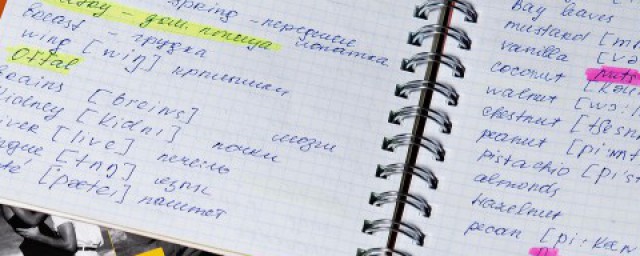 – дом. птица
Spring – передние
лопатка
breast – грудка
wing [wiŋ] крылышки
Offal
brains [breins] мозги
kidney [kidni] почки
[live] печень
[tʌŋ] язык
[pætei] паштет
Bay leaves
mustard
vanilla
coconut
Nuts
walnut [wɔ:
chestnut
peanut [pi:
pistachio [pi's
almonds
hazelnut
pecan [pi:kæn